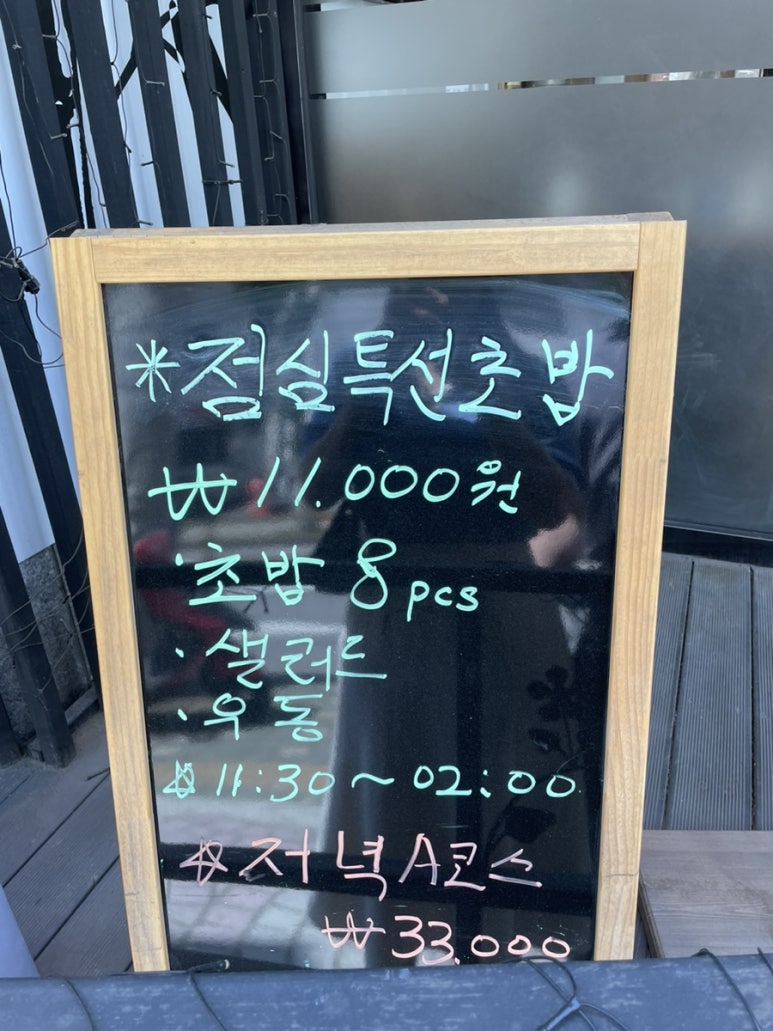 *점심특선초밥
₩11.000원
·초밥 8pcs
·샐러드
·우동
☆11:30~02:00
☆저녁A코스
₩33.000